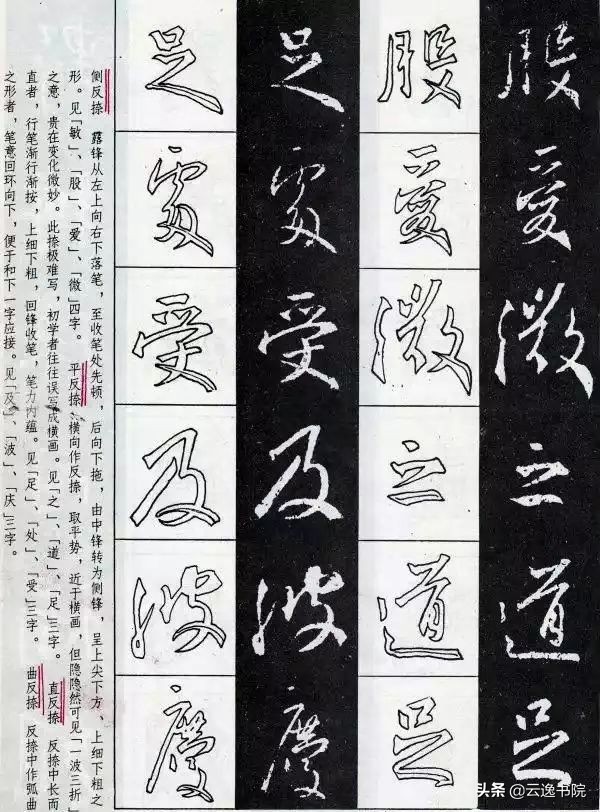 股
愛
微
之
道
足
股
愛
微
之
道
足
足
處
受
及
波
慶
足
處
受
及
波
慶
侧反捺 露锋从左上向右下落笔，至收笔处先顿，后向下拖，由中锋转为侧锋，呈上尖下方、上细下粗之
形。见「敏」、「股」、「爱」、「微」四字。 平反捺 横向作反捺，取平势，近于横画，但隐隐然可见「一波三折」
之意，贵在变化微妙。此捺极难写，初学者往往误写成横画。见「之」、「道」、「足」三字。 直反捺 反捺中长而
直者，行笔渐行渐按，上细下粗，回锋收笔，笔力内蕴。见「足」、「处」、「受」三字。 曲反捺 反捺中作弧曲
之形者，笔意回环向下，便于和下一字应接。见「及」、「波」、「庆」三字。
头条 @云逸书院